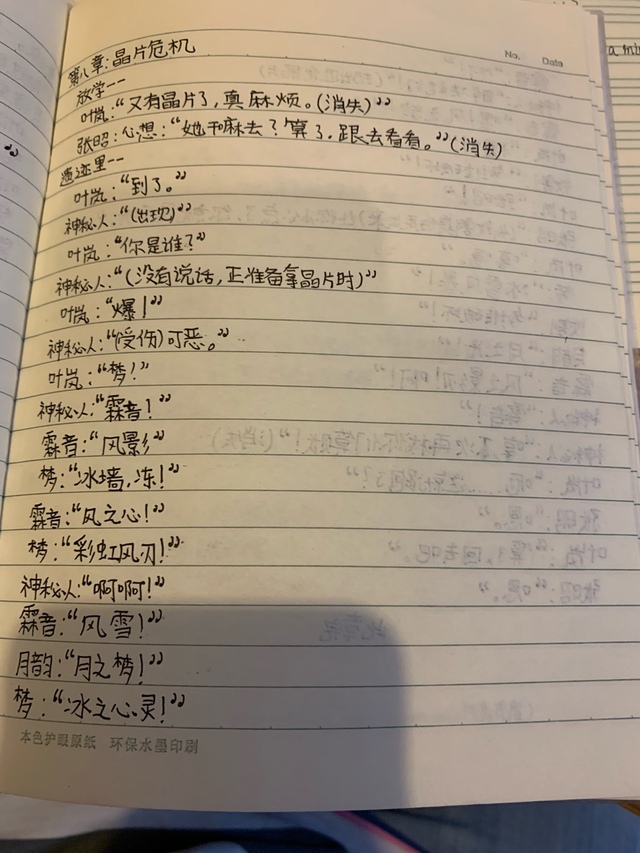 No. Date
第八章:晶片危机
放学--
叶岚:“又有晶片了,真麻烦。(消失)”
张昭:心想:“她干麻去?算了,跟去看看。”(消失)
遗迹里--
叶岚:“到了。”
神秘人:“(出现)”
叶岚:“你是谁?”
神秘人:“(没有说话,正准备拿晶片时)”
叶岚:“爆!”
神秘人:“(受伤)可恶。”
叶岚:“梦!”
神秘人:“霖音!”
霖音:“风影”
梦:“冰墙,冻!”
霖音:“风之心!”
梦:“彩虹风刃!”
神秘人:“啊啊!”
霖音:“风雪!”
月韵:“月之梦!”
梦:“冰之心灵!”
本色护眼原纸 环保水墨印刷